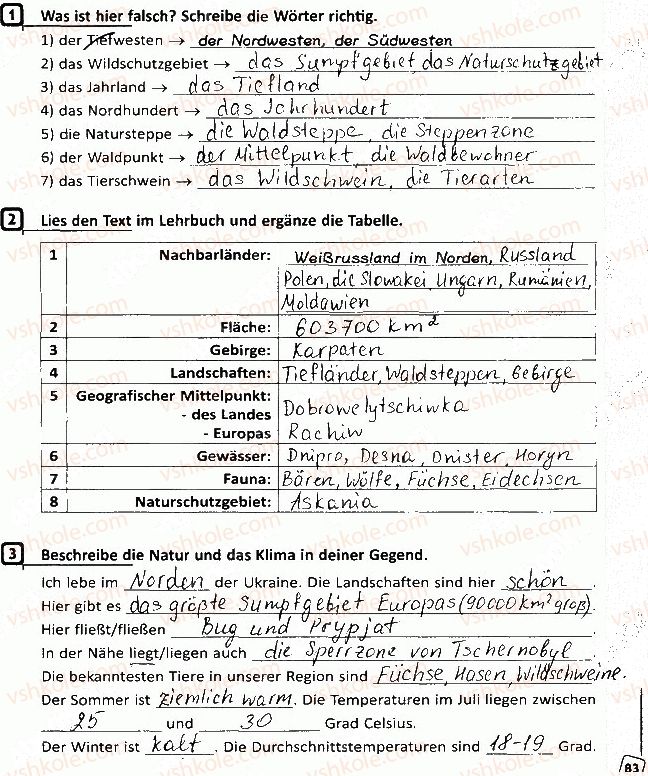 1 Was ist hier falsch? Schreibe die Wörter richtig.
1) der Tiefwesten → der Nordwesten, der Südwesten
2) das Wildschutzgebiet → das Sumpfgebiet, das Naturschutzgebiet
3) das Jahrland → das Tiefland
4) das Nordhundert → das Jahrhundert
5) die Natursteppe → die Waldsteppe, die Steppenzone
6) der Waldpunkt → der Mittelpunkt, die Waldbewohner
7) das Tierschwein → das Wildschwein, die Tierarten
2 Lies den Text im Lehrbuch und ergänze die Tabelle.
1 Nachbarländer: Weißrussland im Norden, Russland
Polen, die Slowakei, Ungarn, Rumänien,
Moldawien
2 Fläche: 603700 km²
3 Gebirge: Karpaten
4 Landschaften: Tiefländer, Waldsteppen, Gebirge
5 Geografischer Mittelpunkt:
- des Landes Dobrowelytschiwka
- Europas Rachiw
6 Gewässer: Dnipro, Desna, Dnister, Horyn
7 Fauna: Bären, Wölfe, Füchse, Eidechsen
8 Naturschutzgebiet: Askania
3 Beschreibe die Natur und das Klima in deiner Gegend.
Ich lebe im Norden der Ukraine. Die Landschaften sind hier schön.
Hier gibt es das größte Sumpfgebiet Europas (90000 km² groß).
Hier fließt/fließen Bug und Prypjat
In der Nähe liegt/liegen auch die Sperrzone von Tschernobyl.
Die bekanntesten Tiere in unserer Region sind Füchse, Hasen, Wildschweine.
Der Sommer ist ziemlich warm. Die Temperaturen im Juli liegen zwischen
25 und 30 Grad Celsius.
Der Winter ist kalt. Die Durchschnittstemperaturen sind 18-19 Grad.
83
vshkole.com